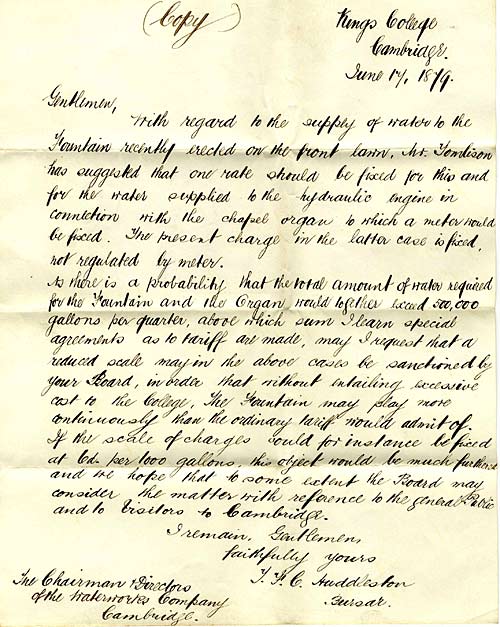 (Copy)
Kings College
Cambridge.
June 17, 1879.
Gentlemen,
With regard to the supply of water to the
Fountain recently erected on the front lawn, Mr. Tomlison
has suggested that one rate should be fixed for this and
for the water supplied to the hydraulic engine in
connection with the chapel organ to which a meter would
be fixed. The present charge in the latter case is fixed,
not regulated by meter.
As there is a probability that the total amount of water required
for the Fountain and the Organ would together exceed 500,000
gallons per quarter, above which sum I learn special
agreements as to tariff are made, may I request that a
reduced scale may in the above cases be sanctioned by
your Board, in order that without entailing excessive
cost to the College, The Fountain may play more
continuously than the ordinary tariff would admit of.
If the scale of charges could for instance be fixed
at 6d. per 1000 gallons, this object would be much furthered
and we hope that to some extent the Board may
consider the matter with reference to the general Public
and to Visitors to Cambridge.
I remain, Gentlemen,
faithfully yours
T. F. C. Huddleston
Bursar.
The Chairman & Directors
of the Waterworks Company
Cambridge.